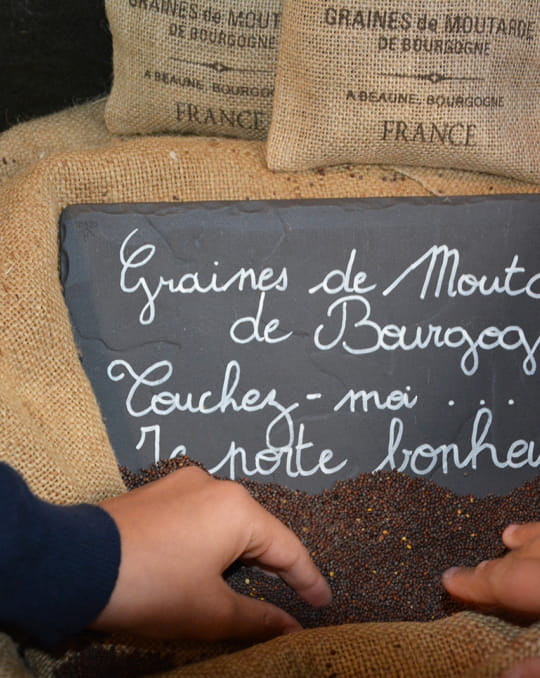 GRAINES de MOUT
DE BOURGOGNE
A BEAUNE, BOURGOG
FRANCE
GRAINES de MOUTARDE
DE BOURGOGNE
A BEAUNE, BOURGOGNE
FRANCE
Graines de Mouta
de Bourgog
Touchez-moi ....
Je porte bonheu